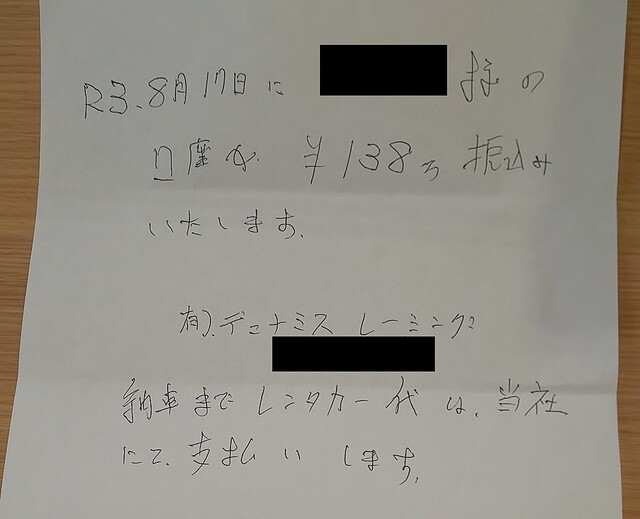 R3.8月17日に 様の
口座が ¥138万 振込み
いたします.
有).デュナミス レーミング
納車まで レンタカー代 は、当社
にて、支払い します.